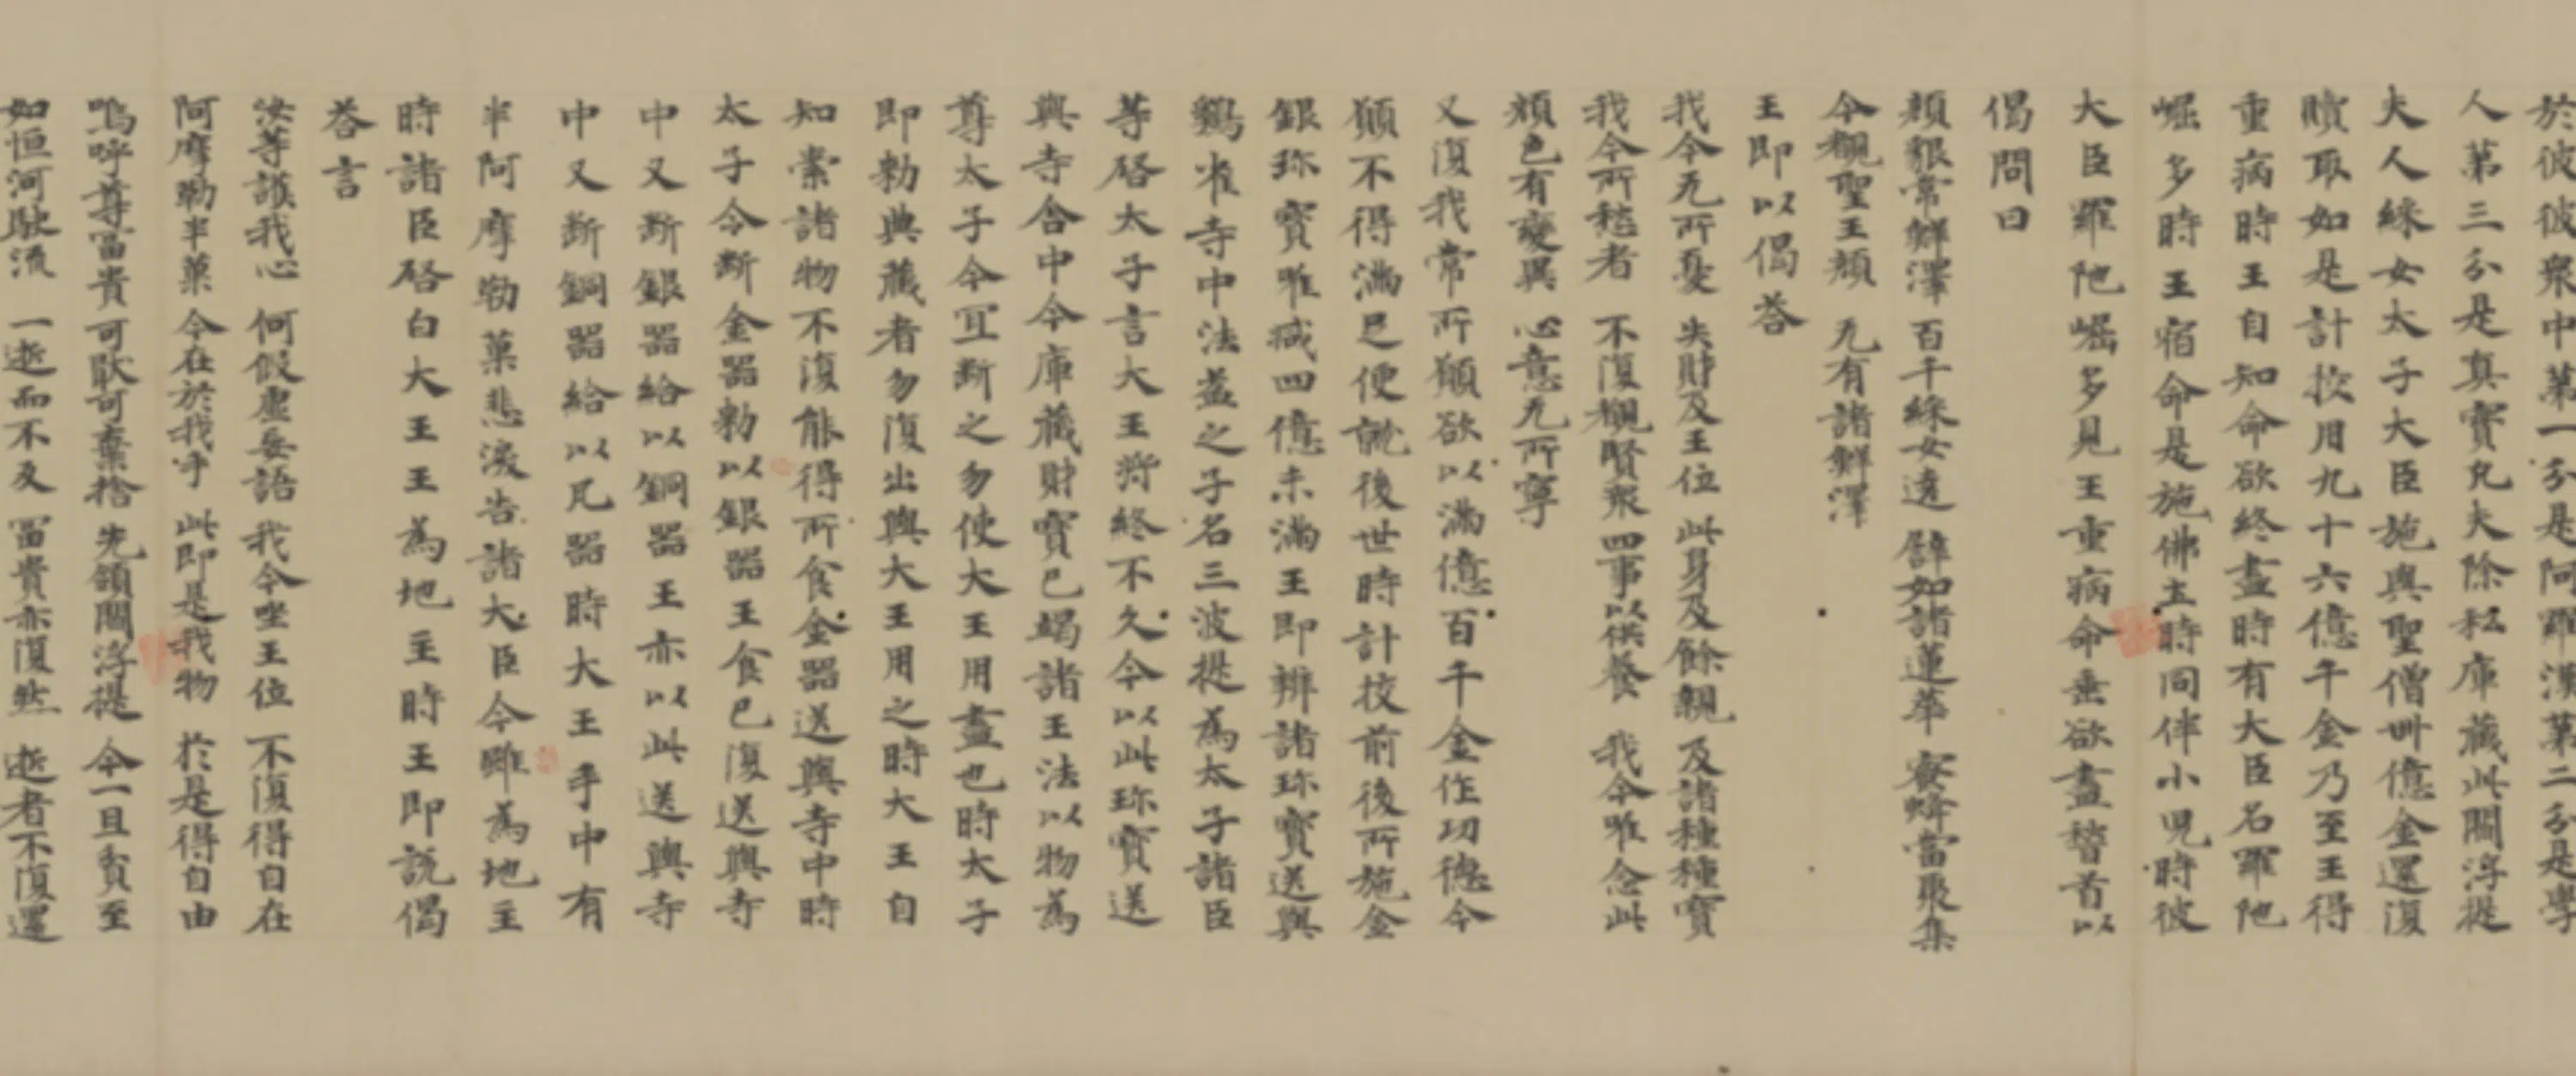 於彼彼衆中第一分是阿羅漢第二分是學
人第三分是真實凡夫除私庫藏此閻浮提
夫人婇女太子大臣施與聖僧卌億金還復
贖取如是計挍用九十六億千金乃至王得
重病時王自知命欲終盡時有大臣名羅陁
崛多時王宿命是施佛圡時同伴小兒時彼
大臣羅陁崛多見王重病命垂欲盡稽首以
偈問曰
顔貌常鮮澤 百千婇女遶 辟如諸蓮華 蜜蜂當聚集
今覩聖王顔 无有諸鮮澤
王即以偈荅
我今无所憂 失財及王位 此身及餘親 及諸種種寶
我今所愁者 不復覩賢衆 四事以供養 我今唯念此
顔色有變異 心意无所寧
又復我常所願欲以滿億百千金作功德今
願不得滿足便就後世時計挍前後所施金
銀珎寶唯减四億未滿王即辦諸珎寶送與
鷄雀寺中法益之子名三波提為太子諸臣
等啓太子言大王將終不久今以此珎寶送
與寺舍中今庫藏財寶已竭諸王法以物為
尊太子今冝斷之勿使大王用盡也時太子
即勑典藏者勿復出與大王用之時大王自
知索諸物不復能得所食金器送與寺中時
太子令斷金器勑以銀器王食已復送與寺
中又斷銀器給以銅器王亦以此送與寺
中又斷銅器給以凡器時大王手中有
半阿摩勒菓悲淚告諸大臣今雖為地主
時諸臣啓白大王王為地主時王即說偈
荅言
汝等護我心 何假虛妄語 我今坐王位 不復得自在
阿摩勒半菓 今在於我手 此即是我物 於是得自由
嗚呼尊富貴 可猒可棄捨 先領閻浮提 今一旦貧至
如恒河駃流 一逝而不反 冨貴亦復然 逝者不復還